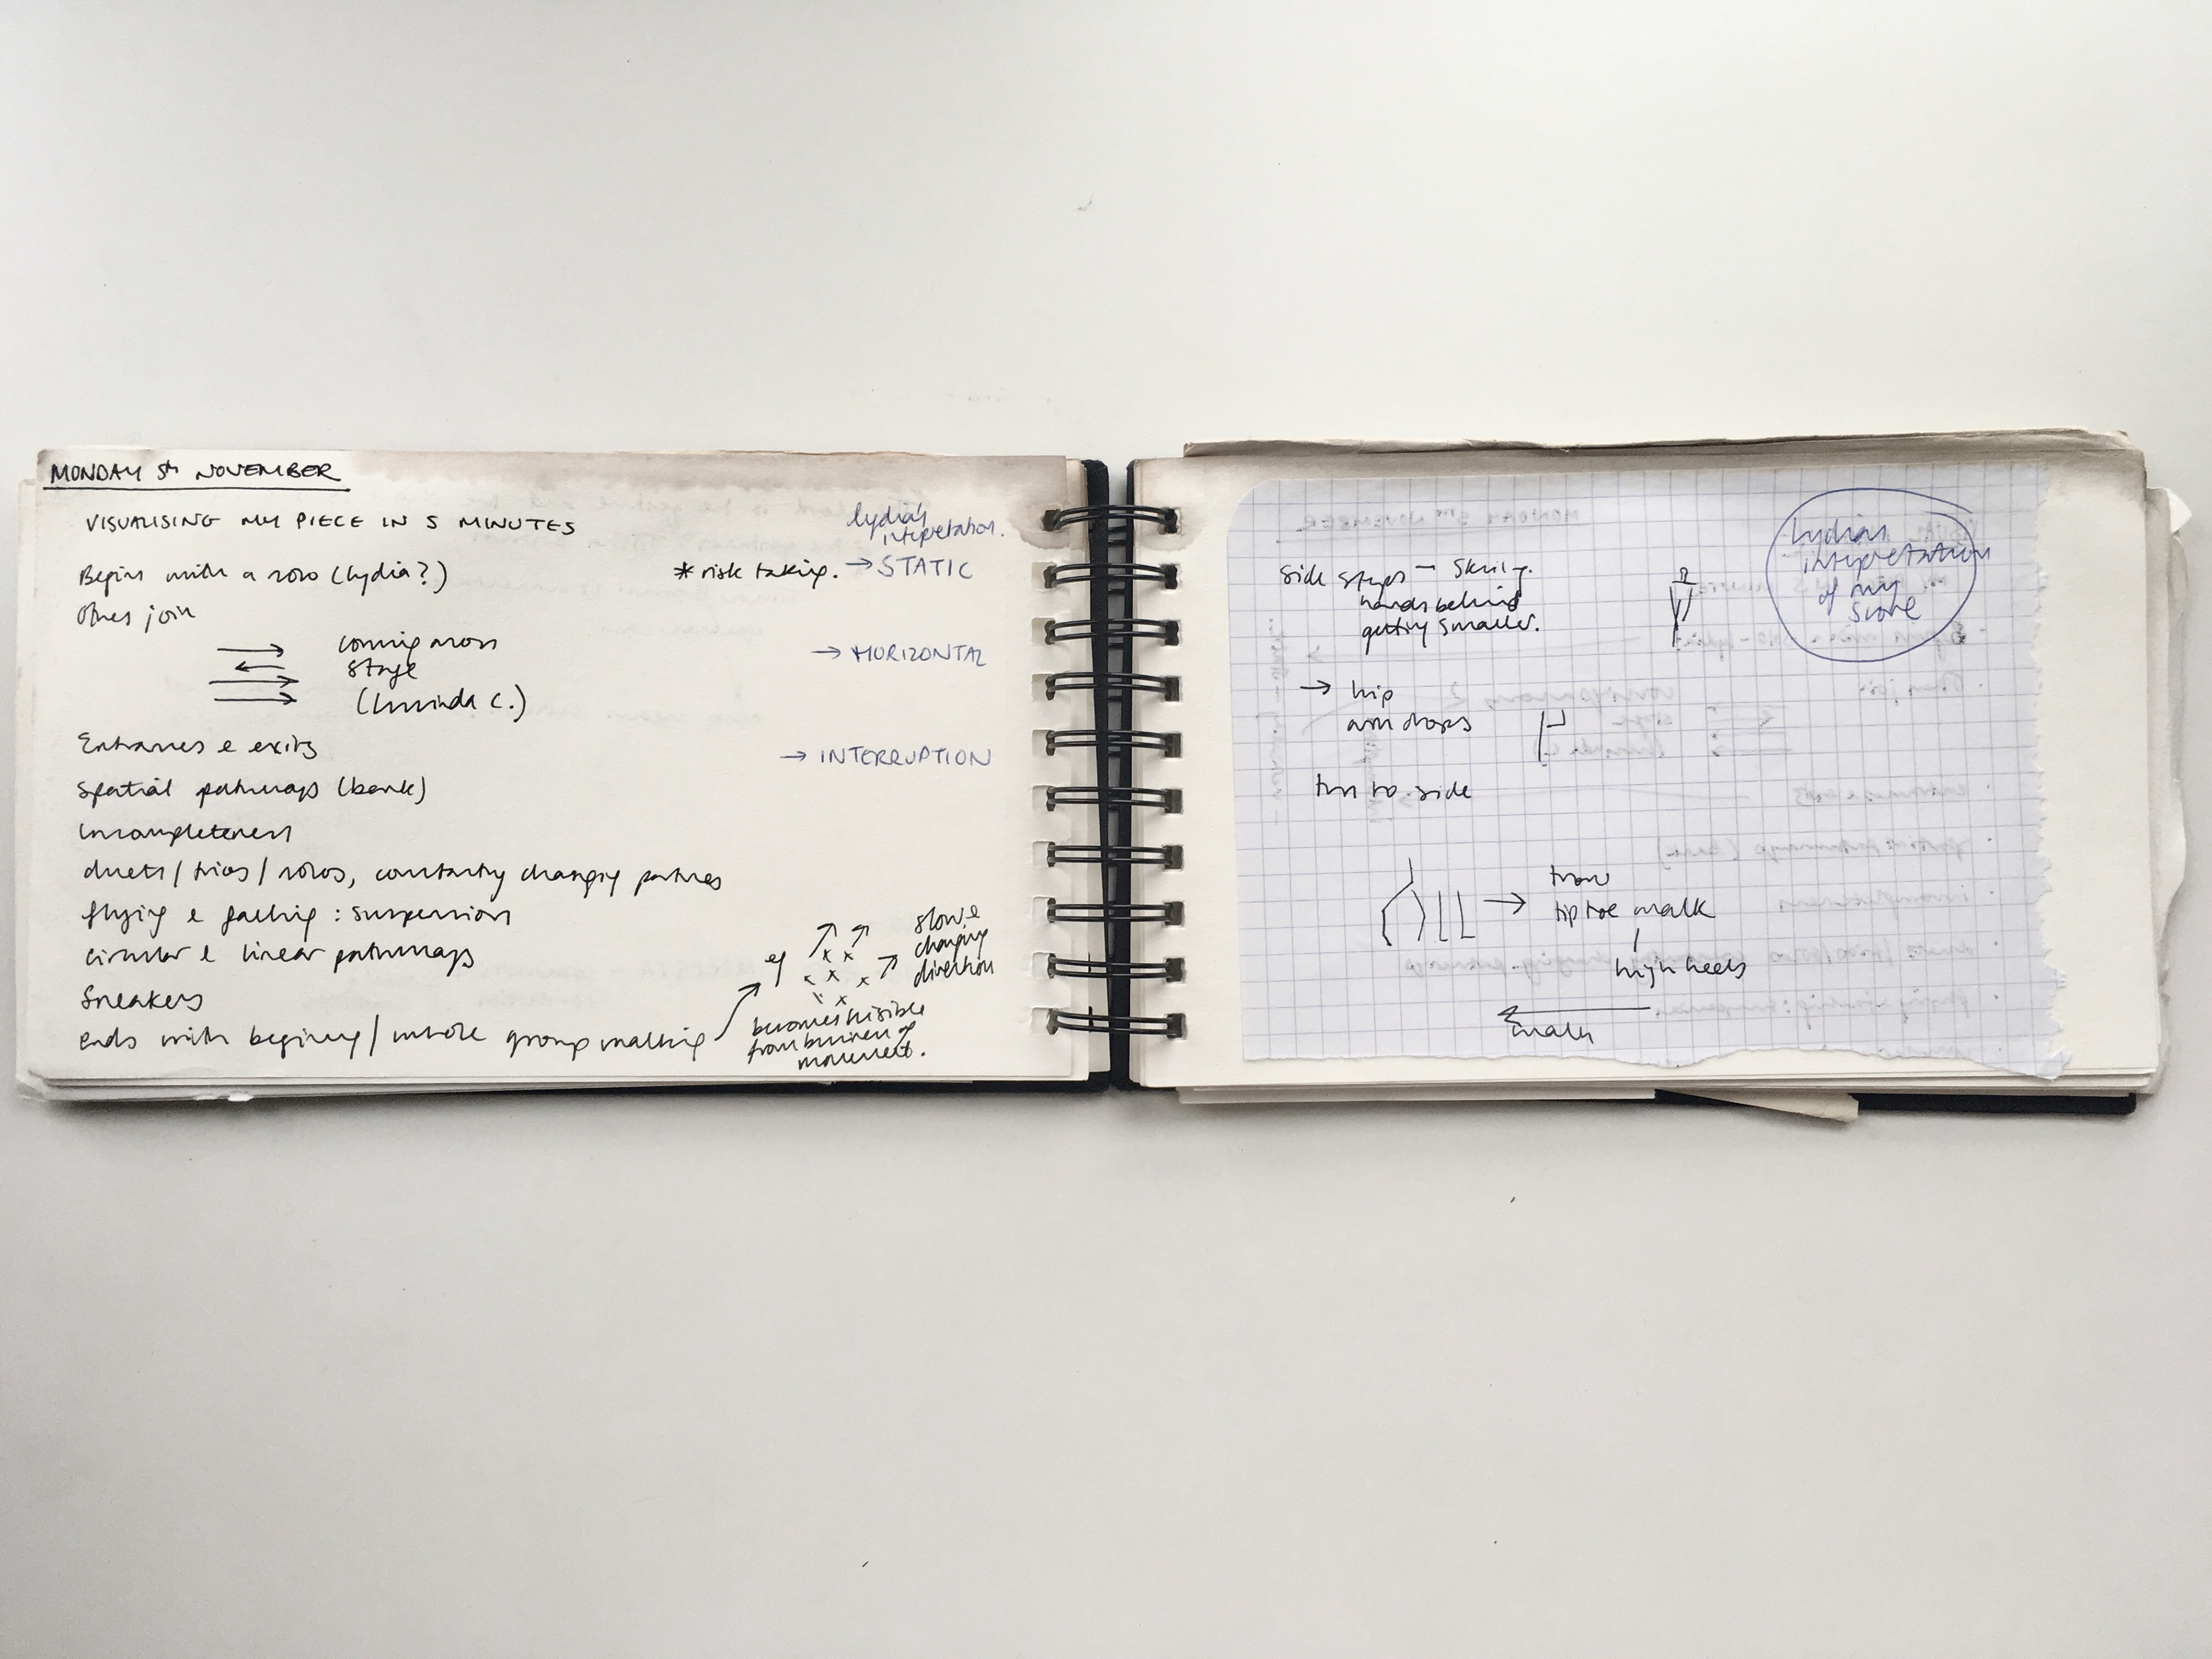 MONDAY 5th NOVEMBER
VISUALISING MY PIECE IN 5 MINUTES
Begins with a solo (Lydia?)
Others join
coming across
stage
(Lucinda C.)
Entrances & exits
Spatial pathways (bank)
Incompleteness
duets/trios/solos, constantly changing partners
flying & falling : suspension
circular & linear pathways
Sneakers
ends with beginning/whole group walking
Lydia's
interpretation.
* risk taking. → STATIC
→ HORIZONTAL
→ INTERRUPTION
eg
slow &
changing
direction
becomes visible
from business of
movement.
Lydia's
interpretation
of my
score
side steps –
hands behind
getting smaller.
→ hip
arm drops
turn to side
→
tip toe walk
high heels
walk